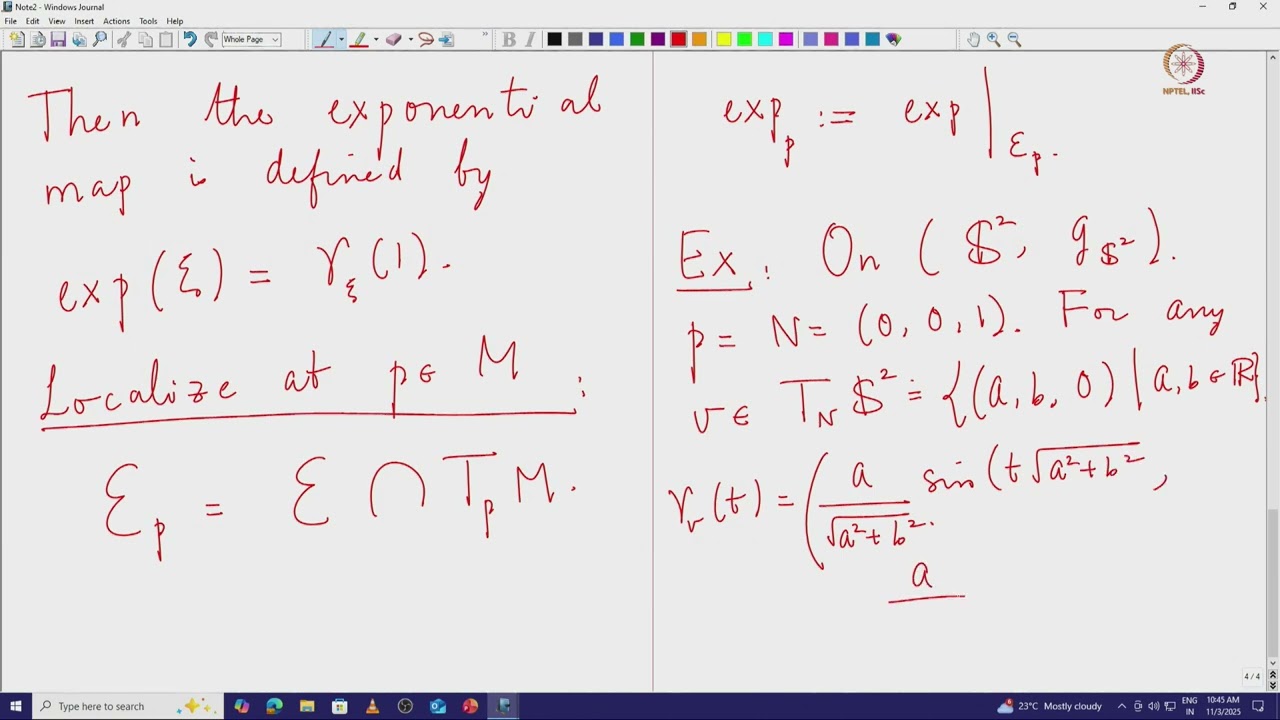 Note2 - Windows Journal
File Edit View Insert Actions Tools Help
Whole Page
B I
NPTEL, IISc
Then the exponential
map is defined by
exp(ξ) = γ_ξ(1).
Localize at p∈ M :
ℰ_p = ℰ ∩ T_p M.
exp_p := exp|_ℰ_p.
Ex: On (𝕊², g_𝕊²).
p = N = (0, 0, 1). For any
v ∈ T_N 𝕊² = {(a, b, 0) | a, b ∈ ℝ}.
γ_v(t) = (a/√(a²+b²) sin(t√(a²+b²),
a
4 / 4
Type here to search
23°C Mostly cloudy
ENG
IN
10:45 AM
11/3/2025